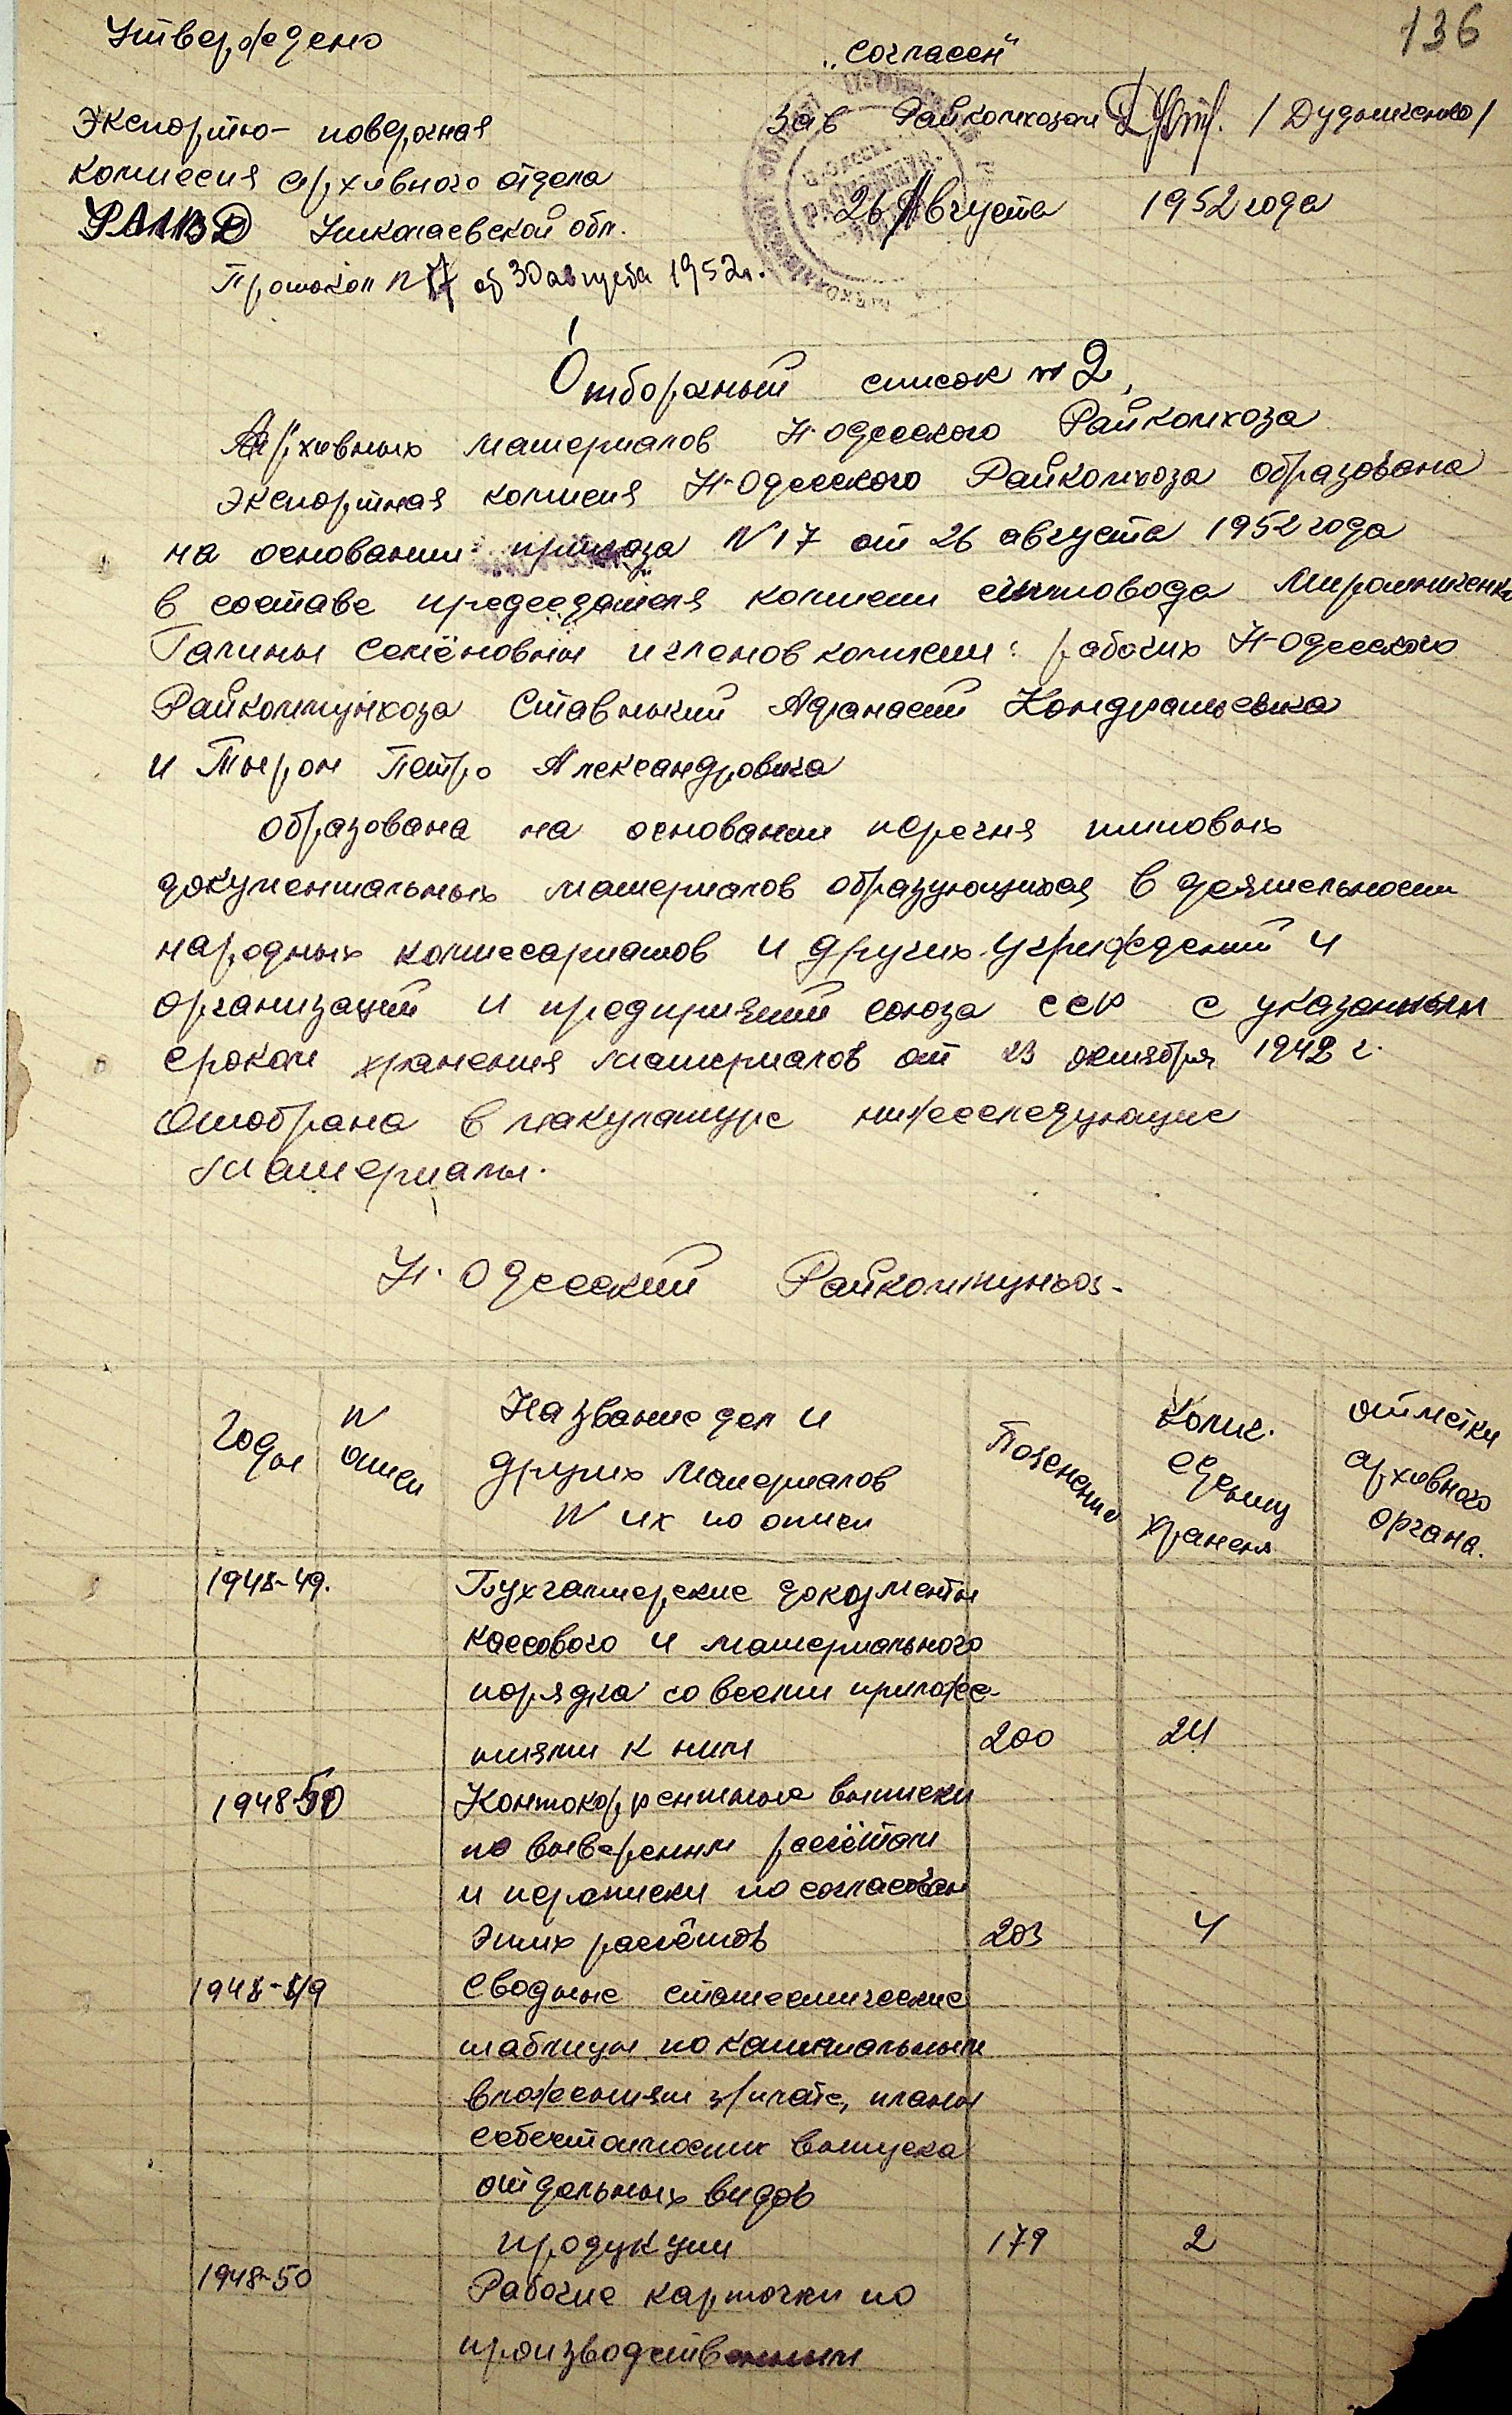 136
Утверждено
„Согласен"
Экспортно-поверочная
комиссия архивного отдела
УМВД Николаевской обл.
Протокол N 17 от 30 августа 1952 г.
Зав Райкомхозом / Дудниченко /
26 Августа 1952 года
Отборочный список N 2
Архивных материалов Н-Одесского Райкомхоза
Экспортная комисия Н-Одесского Райкомхоза образована
на основании приказа N 17 от 26 августа 1952 года
в составе председателя комисии счетовода Мирошниченко
Галины Семёновны и членов комисии: рабочих Н-Одесского
Райкоммунхоза Ставнький Афанасий Кондратьевича
и Тырон Петро Александровича
образована на основании перечня типовых
документальных материалов образующихся в деятельности
народных комиссариатов и других учриждений и
организаций и предприятий союза ССР с указанием
сроком хранения материалов от 23 октября 1942 г.
Отобрана в макулатуре нижеследующие
материалы.
Н. Одесский Райкоммунхоз-
Годы
N описи
Название дел и
других материалов
N их по описи
Пояснение
Колич. единиц хранен
отметки архивного органа.
1948-49.
Бухгалтерские документы
кассового и материального
порядка со всеми приложе-
ниями к ним 200 24
1948-50 Контокоррентные выписки
по выверенным расчётам
и переписки по согласован
этих расчётов 203 4
1948-49 Сводные статестические
таблицы по капитальным
вложениям з/плате, планы
себестоимости выпуска
отдельных видов
продукции 179 2
1948-50 Рабочие карточки по
производственным